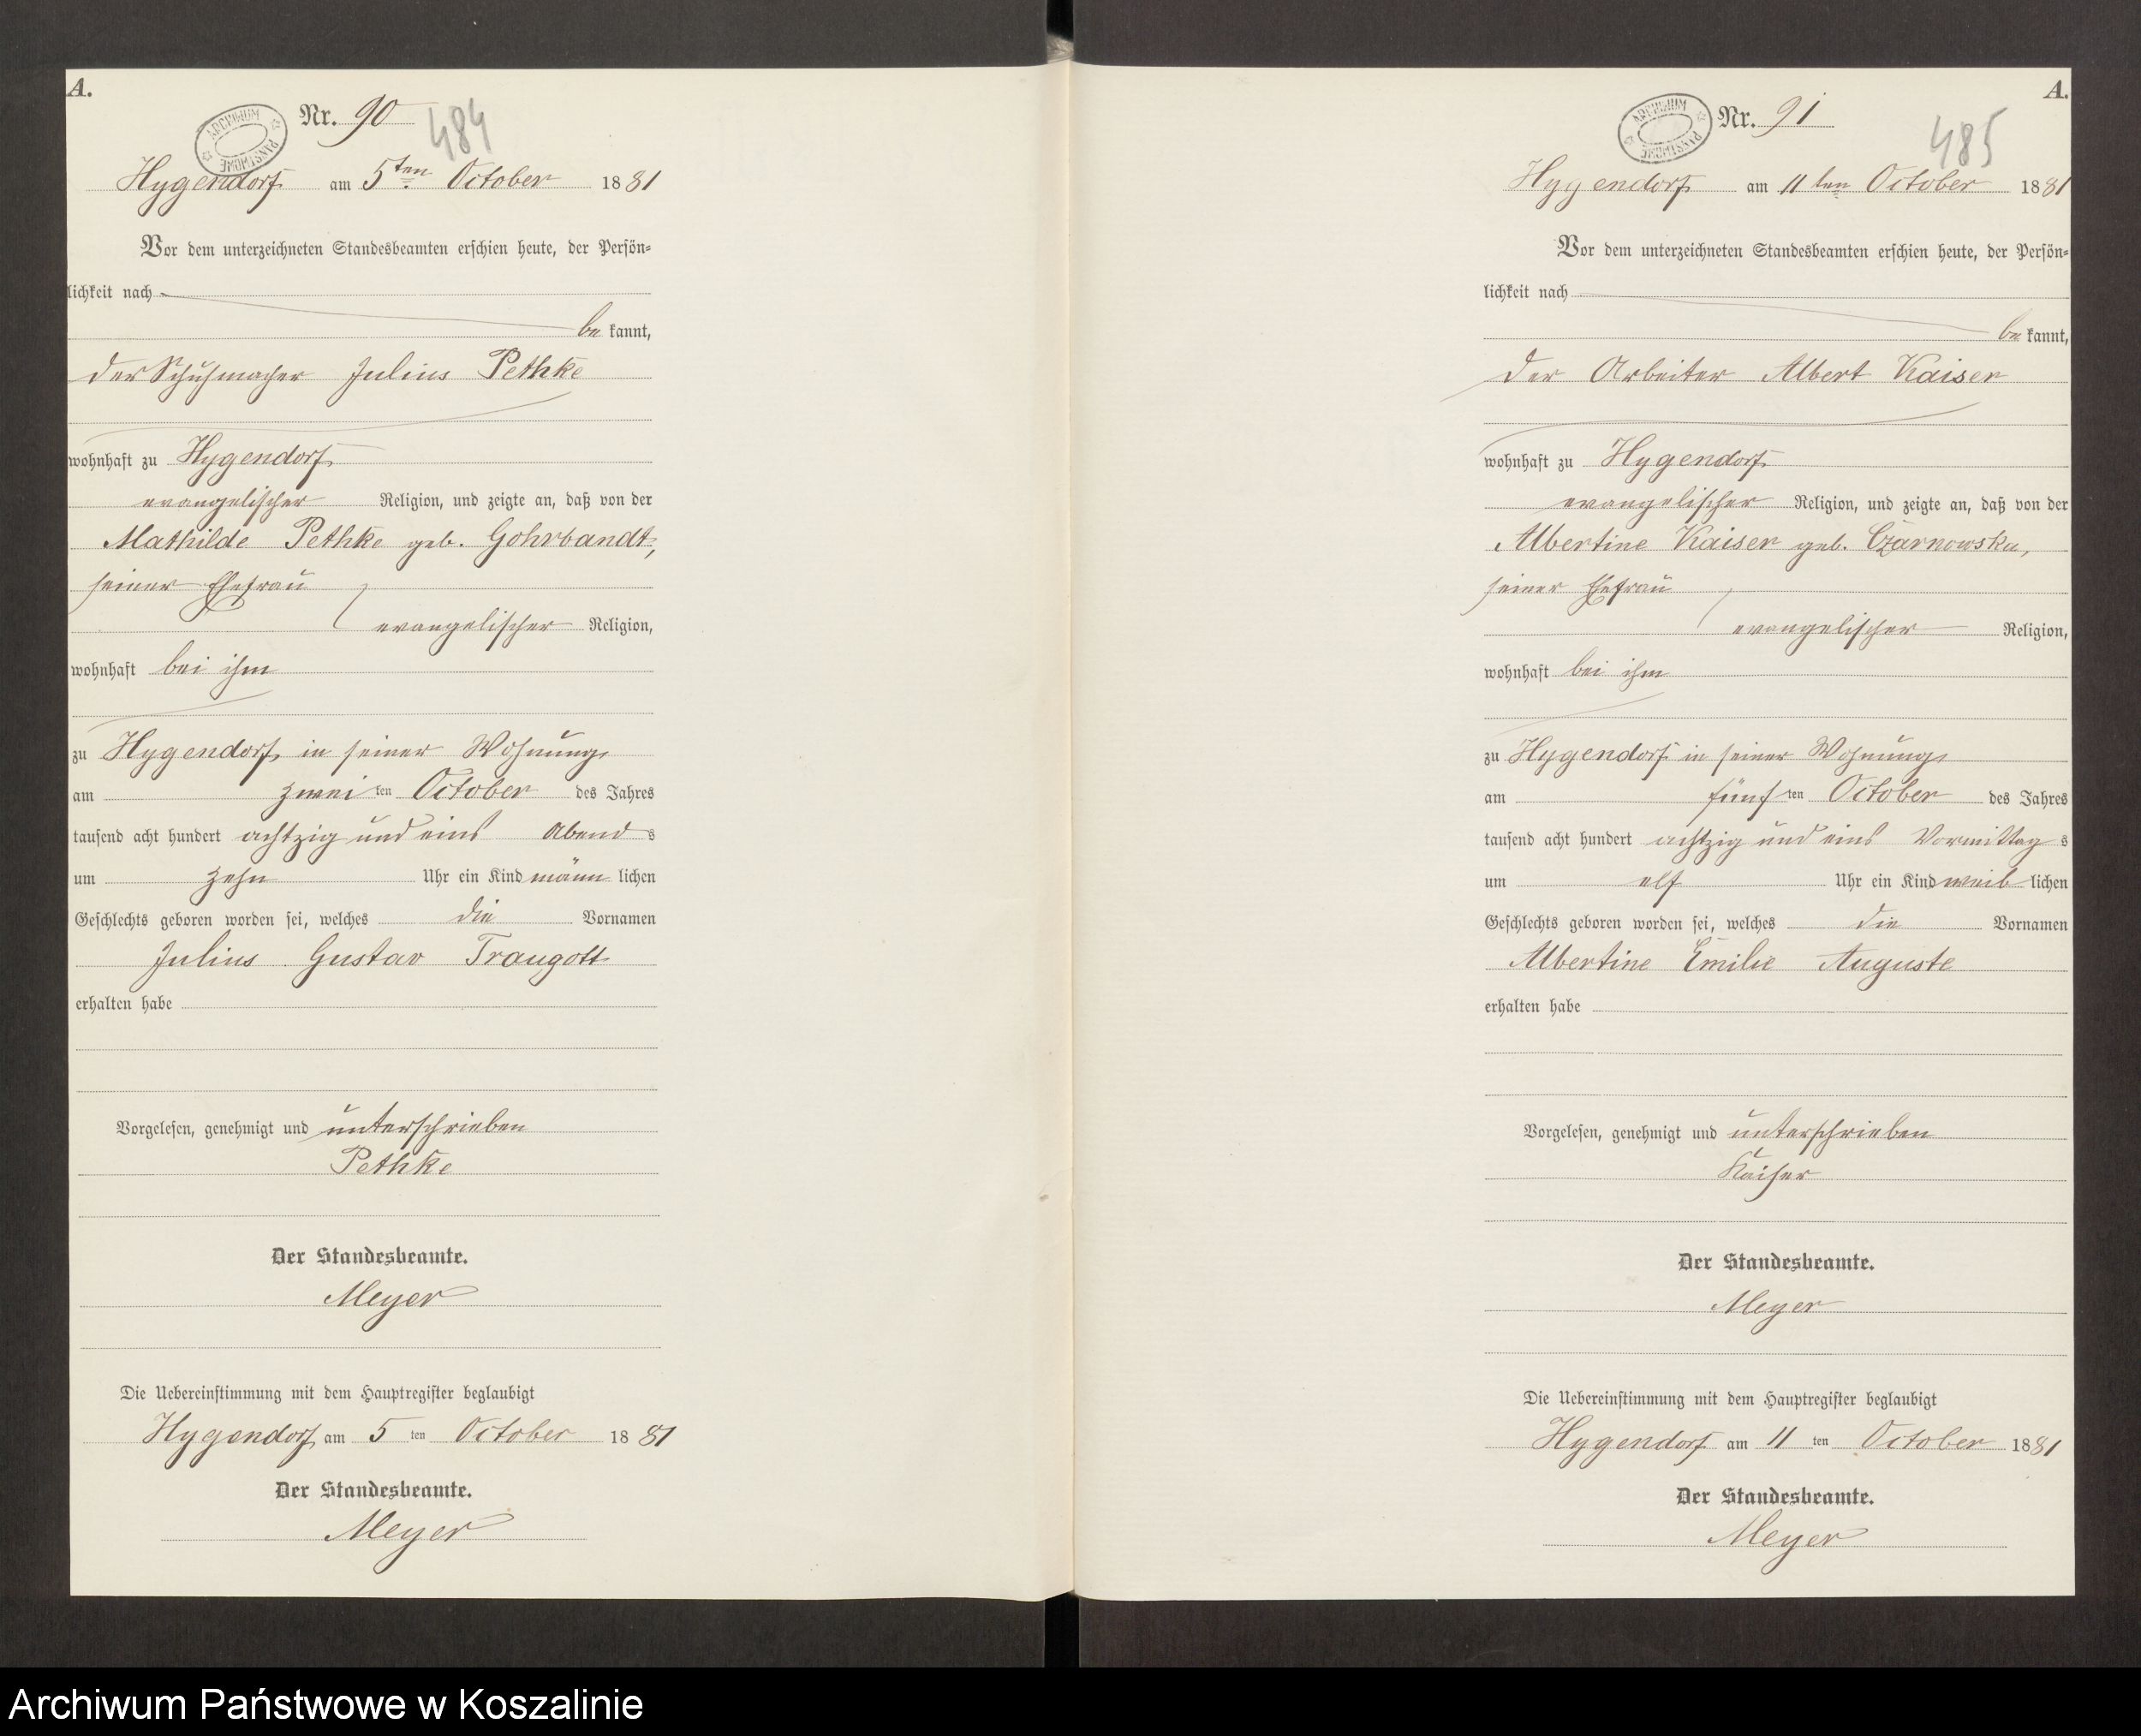 A.
Nr. 90
484
ARCHIWUM PAŃSTWOWE
Hygendorf am 5ten October 1881
Vor dem unterzeichneten Standesbeamten erschien heute, der Persön-
lichkeit nach
be kannt,
der Schuhmacher Julius Pethke
wohnhaft zu Hygendorf
evangelischer Religion, und zeigte an, daß von der
Mathilde Pethke geb. Gohrbandt,
seiner Ehefrau
evangelischer Religion,
wohnhaft bei ihm
zu Hygendorf in seiner Wohnung
am zwei ten October des Jahres
tausend acht hundert achtzig und eins Abend s
um zehn Uhr ein Kind männ lichen
Geschlechts geboren worden sei, welches die Vornamen
Julius Gustav Traugott
erhalten habe
Vorgelesen, genehmigt und unterschrieben
Pethke
Der Standesbeamte.
Meyer
Die Uebereinstimmung mit dem Hauptregister beglaubigt
Hygendorf am 5 ten October 1881
Der Standesbeamte.
Meyer
A.
Nr. 91
485
ARCHIWUM PAŃSTWOWE
Hygendorf am 11ten October 1881
Vor dem unterzeichneten Standesbeamten erschien heute, der Persön-
lichkeit nach
be kannt,
der Arbeiter Albert Kaiser
wohnhaft zu Hygendorf
evangelischer Religion, und zeigte an, daß von der
Albertine Kaiser geb. Czarnowska,
seiner Ehefrau
evangelischer Religion,
wohnhaft bei ihm
zu Hygendorf in seiner Wohnung
am fünf ten October des Jahres
tausend acht hundert achtzig und eins Vormittag s
um elf Uhr ein Kind weib lichen
Geschlechts geboren worden sei, welches die Vornamen
Albertine Emilie Auguste
erhalten habe
Vorgelesen, genehmigt und unterschrieben
Kaiser
Der Standesbeamte.
Meyer
Die Uebereinstimmung mit dem Hauptregister beglaubigt
Hygendorf am 11 ten October 1881
Der Standesbeamte.
Meyer
Archiwum Państwowe w Koszalinie